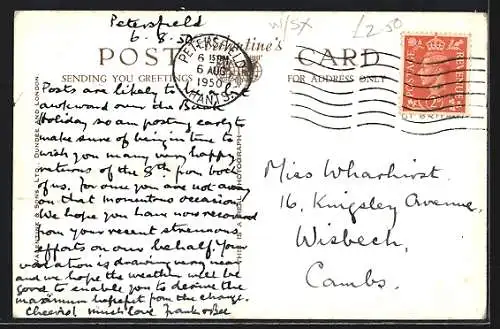 Petersfield
6.8.50
W/SX
£2.50
POST CARD
Valentine's
SENDING YOU GREETINGS
FOR ADDRESS ONLY
PETERSFIELD
6 15PM
6 AUG
1950
HANTS
POSTAGE
REVENUE
VALENTINE & SONS, LTD., DUNDEE AND LONDON.
Posts are likely to be a bit
awkward over the Bank
Holiday so am posting early to
make sure of being in time to
wish you many very happy
returns of the 8th from both
of us. For once you are not away
on that momentous occasion.
We hope you have now recovered
from your recent strenuous
efforts on our behalf. Your
vacation is drawing very near
and we hope the weather will be
good to enable you to derive the
maximum benefit from the change.
Cheerio! much love Frank & Bee
Miss Wharhirst.
16, Kingsley Avenue,
Wisbech,
Cambs.